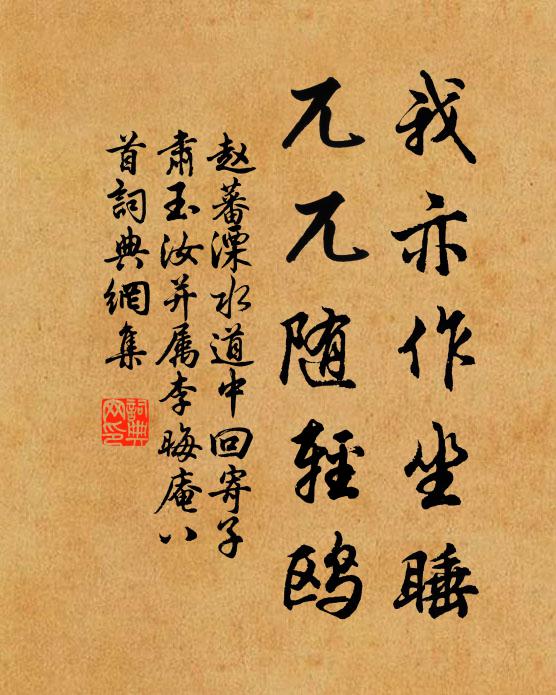 我亦作坐睡
兀兀随輕鸥
赵蕃溧水道中回寄子
肃玉汝并属李晦庵八
首詞典網集
詞典網印